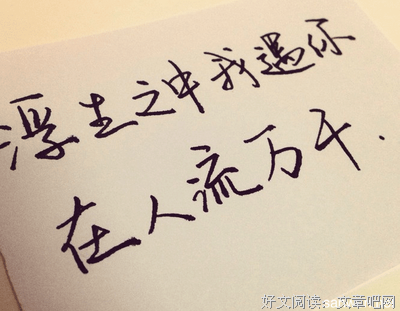 浮生之中我遇你
在人流万千.
好文阅读:文章吧网